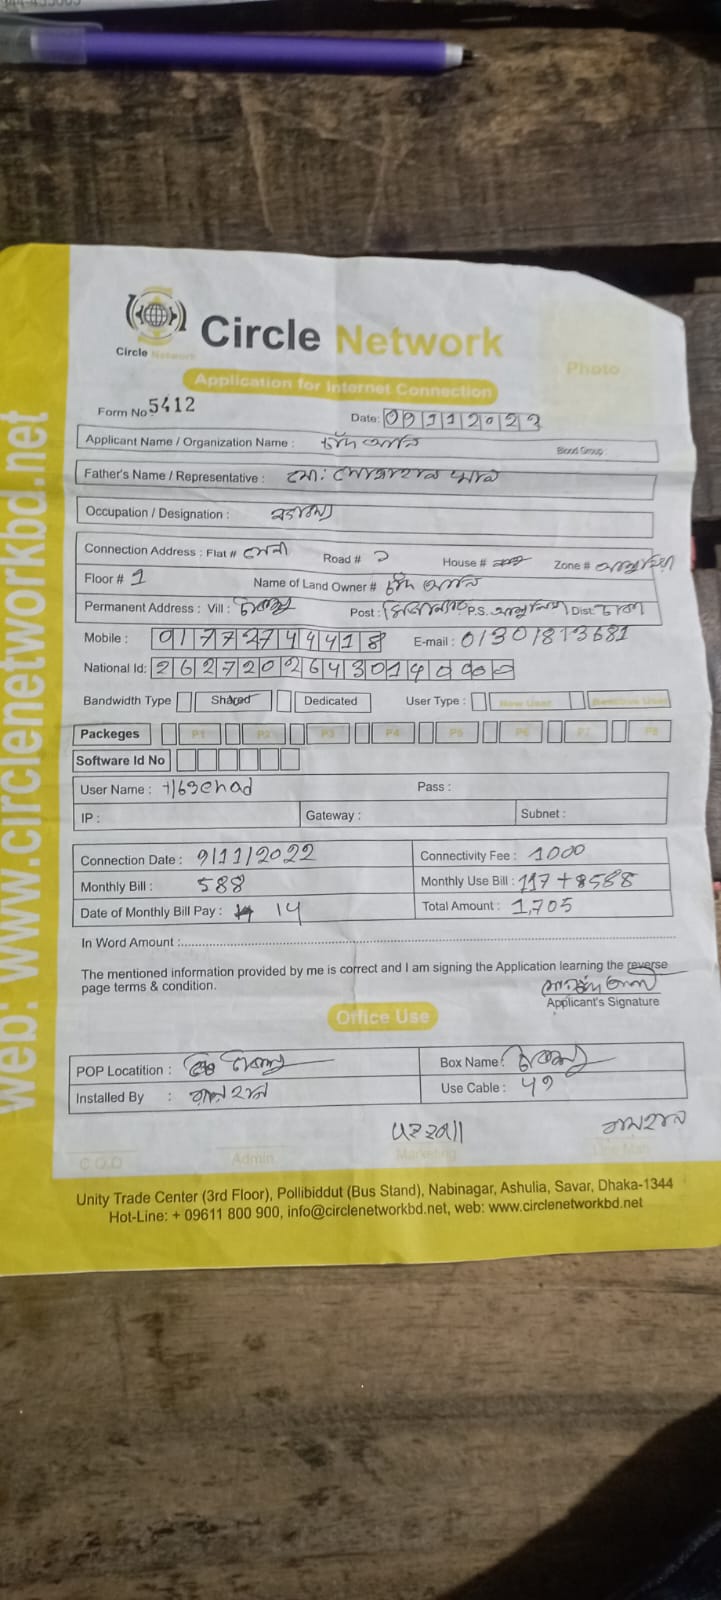 Circle Network
Circle Network
Photo
Application for Internet Connection
Form No 5412
Date: 09112023
Applicant Name / Organization Name : চাঁদ আলী
Blood Group
Father's Name / Representative : মো:
Occupation / Designation :
Connection Address : Flat # Road # ১ House # Zone # আশুলিয়া
Floor # 1 Name of Land Owner # চাঁদ আলী
Permanent Address : Vill : Post : P.S. আশুলিয়া Dist: ঢাকা
Mobile : 01772744418 E-mail : 01301813681
National Id:
Bandwidth Type Shared Dedicated User Type : New User
Packeges P1 P2 P3 P4 P5 P6 P7 P8
Software Id No
User Name : Pass :
IP : Gateway : Subnet :
Connection Date : 9/11/2022 Connectivity Fee : 1000
Monthly Bill : 588 Monthly Use Bill : 117 +
Date of Monthly Bill Pay : 14 Total Amount : 1,705
In Word Amount :
The mentioned information provided by me is correct and I am signing the Application learning the reverse
page terms & condition.
Applicant's Signature
Office Use
POP Locatition : Box Name :
Installed By : Use Cable :
C.O.D Admin Marketing Line Man
Unity Trade Center (3rd Floor), Pollibiddut (Bus Stand), Nabinagar, Ashulia, Savar, Dhaka-1344
Hot-Line: + 09611 800 900, info@circlenetworkbd.net, web: www.circlenetworkbd.net
web: www.circlenetworkbd.net